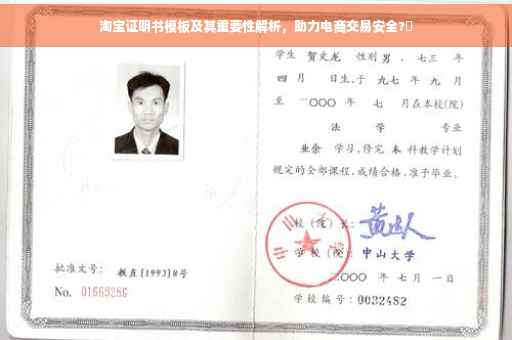 淘宝证明书模板及其重要性解析，助力电商交易安全?
学生 贺文龙 性别 男 、七三 年
四 月 日生,于 九七 年 九 月
至 二〇〇〇 年 七 月在本校(院)
法 学 专业
业余 学习,修完 本 科教学计划
规定的全部课程,成绩合格,准予毕业。
校(院)长:
学校(院): 中山大学
二〇〇〇 年 七 月 一 日
批准文号: 教直[1993]8号
No. 01669286
学校编号: 0032482